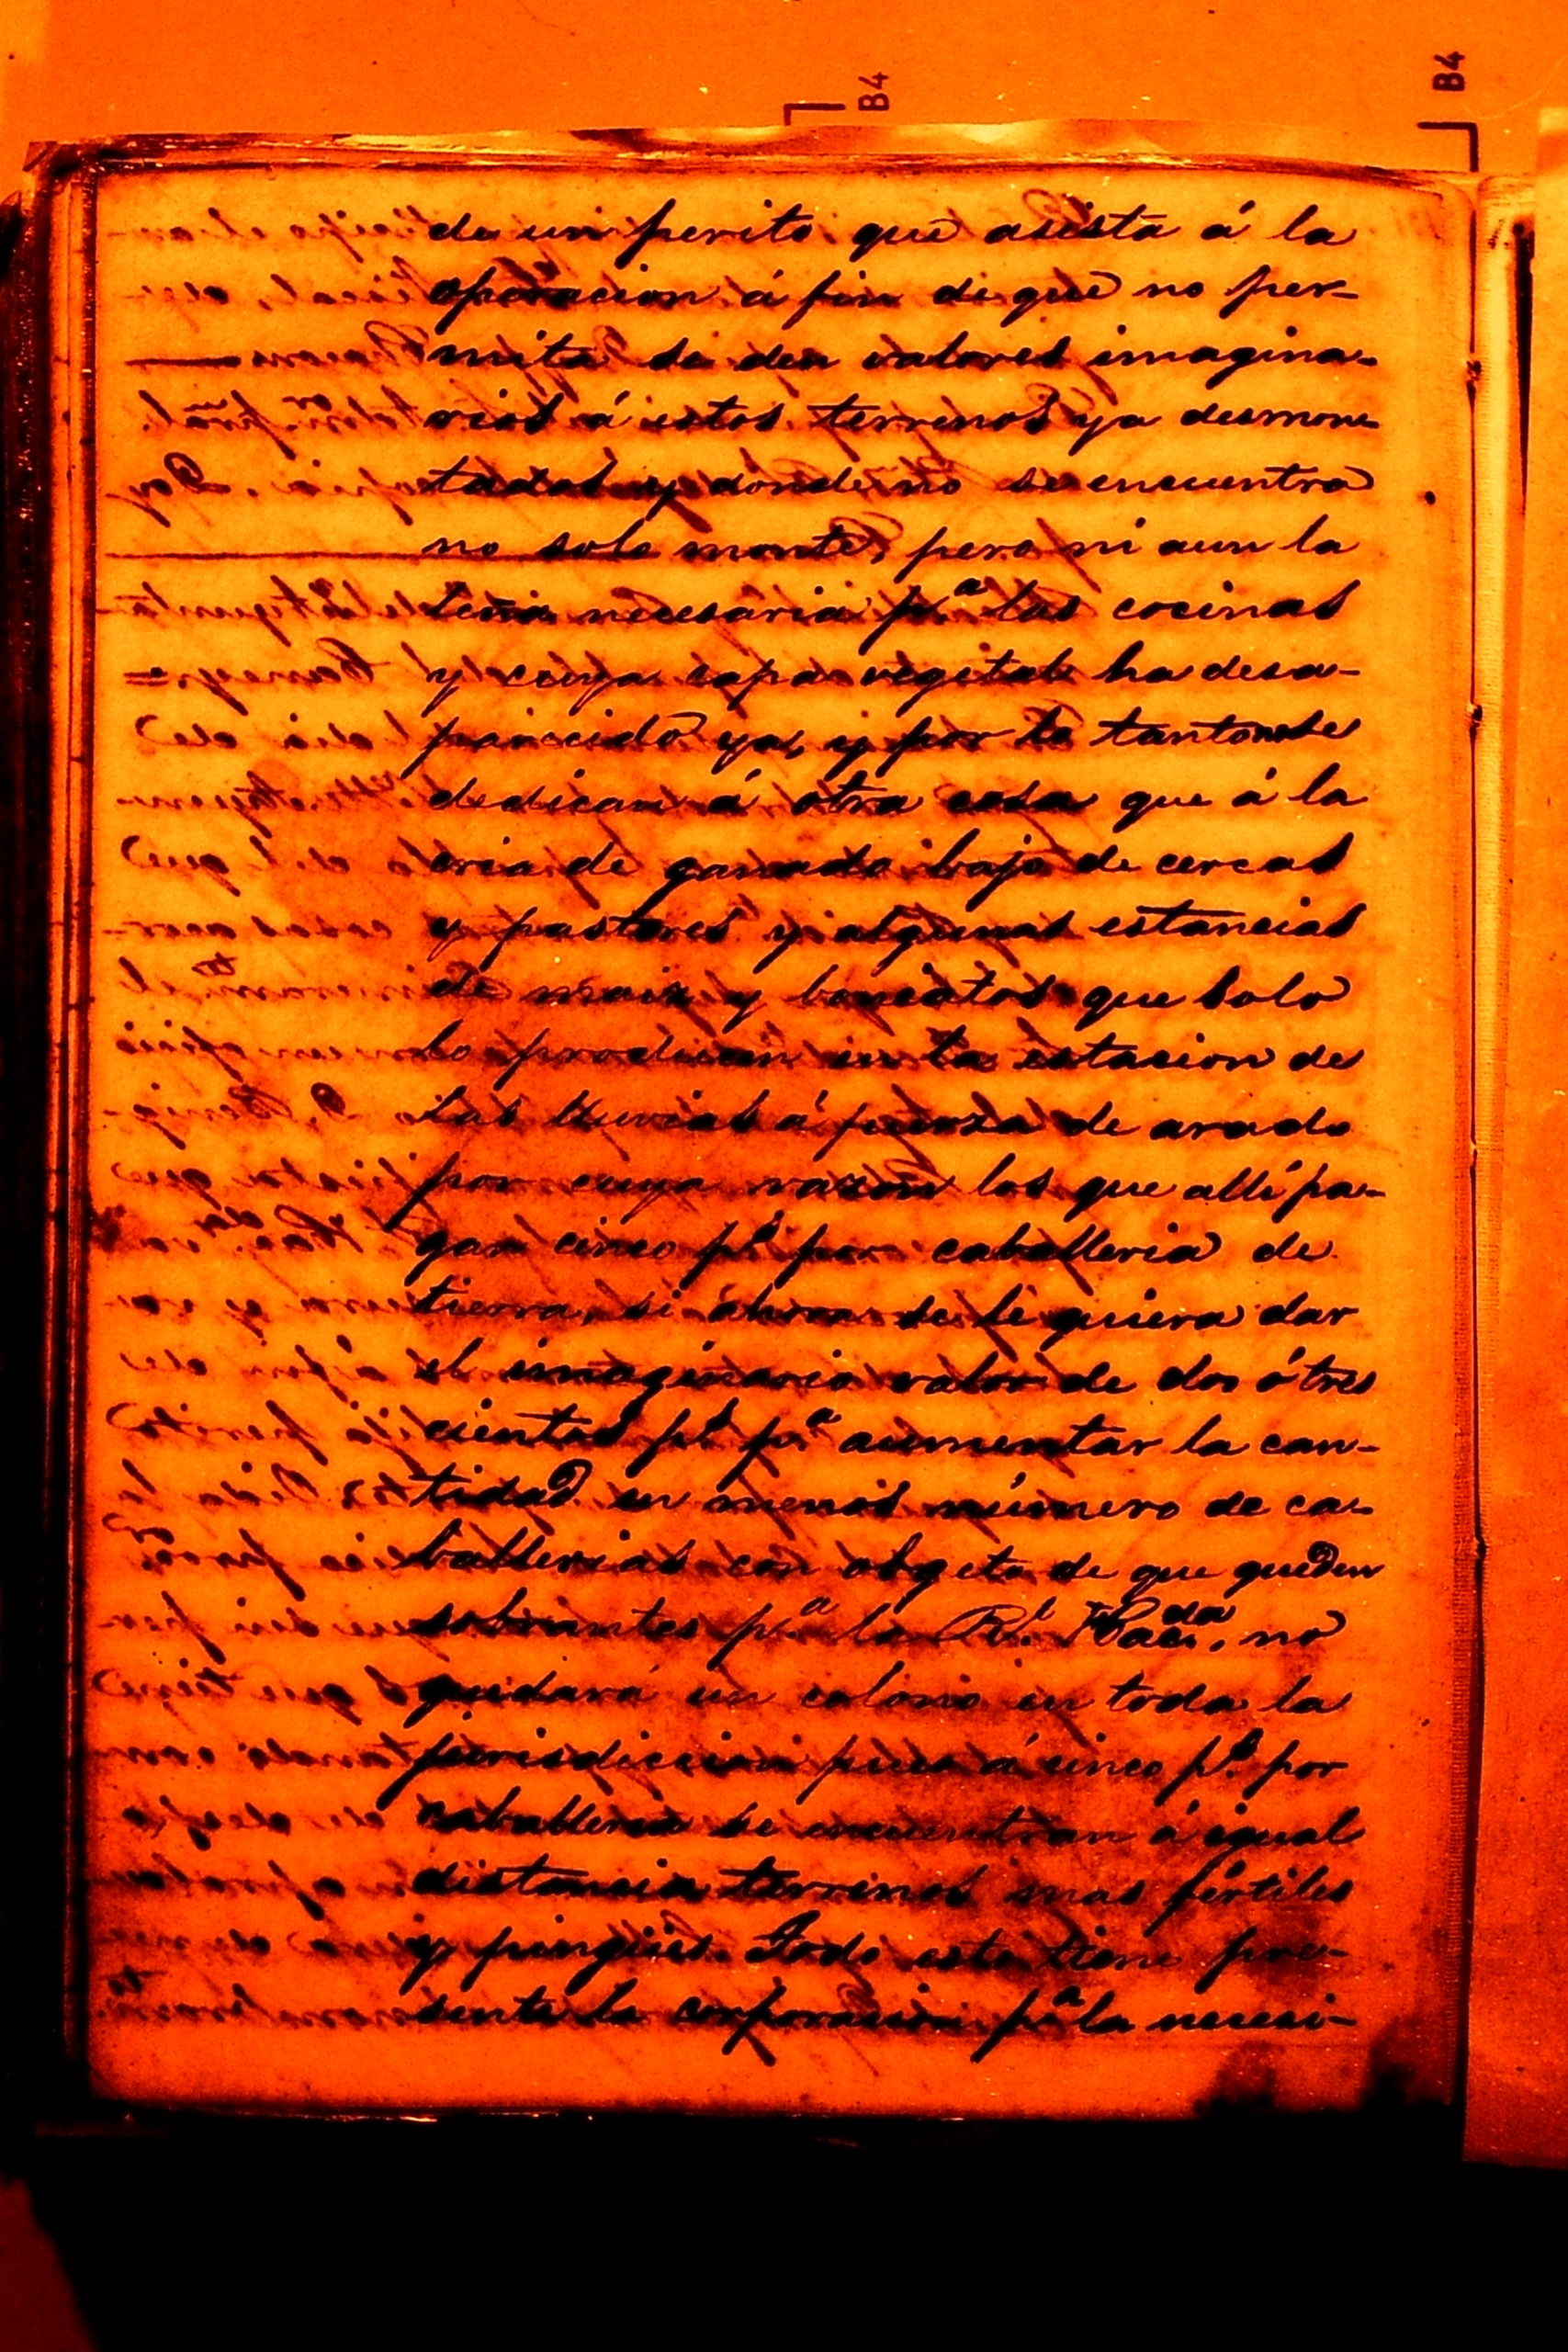 B4
B4
de un perito que asista á la
operacion á fin de que no per-
mita se den valores imagina-
rios á estos terrenos ya desmon-
tados y donde no se encuentra
no solo monte, pero ni aun la
leña necesaria pª las cocinas
y cuya capa vegetal ha desa-
parecido ya, y por lo tanto no se
dedican á otra cosa que á la
cria de ganado bajo de cercas
y pastores y algunas estancias
de maiz y boniatos que solo
lo producen en la estacion de
las lluvias á fuerza de arado
por cuya razon los que allí pa-
gan cinco pˢ por caballeria de
tierra, si ahora se le quiera dar
el imaginario valor de dos ó tres
cientos pˢ pª aumentar la can-
tidad en menos número de ca-
ballerias con obgeto de que queden
sobrantes pª la Rˡ Hacᵈᵃ, no
quedará un colono en toda la
jurisdiccion pues á cinco pˢ por
caballeria se encuentran á igual
distancia terrenos mas fértiles
y pingües. Todo esto tiene pre-
sente la corporacion pª la necesi-